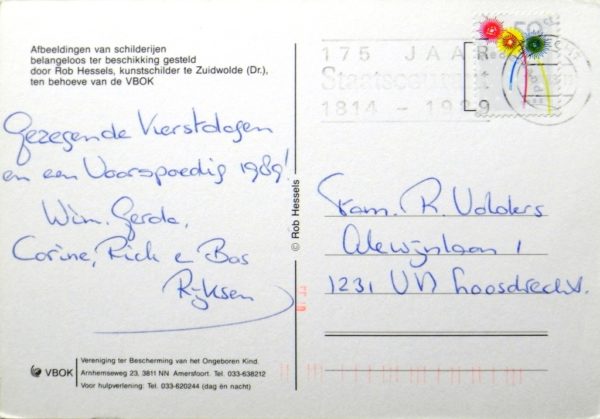 Afbeeldingen van schilderijen
belangeloos ter beschikking gesteld
door Rob Hessels, kunstschilder te Zuidwolde (Dr.),
ten behoeve van de VBOK
175 JAAR
Staatscourant
1814 - 1989
Gezegende Kerstdagen
en een Voorspoedig 1989!
Wim, Gerda,
Corine, Rick e Bas
Rijksen
© Rob Hessels
Fam. R. Volders
Alewijnlaan 1
1231 VD Loosdrecht.
VBOK
Vereniging ter Bescherming van het Ongeboren Kind.
Arnhemseweg 23, 3811 NN Amersfoort. Tel. 033-638212
Voor hulpverlening: Tel. 033-620244 (dag én nacht)